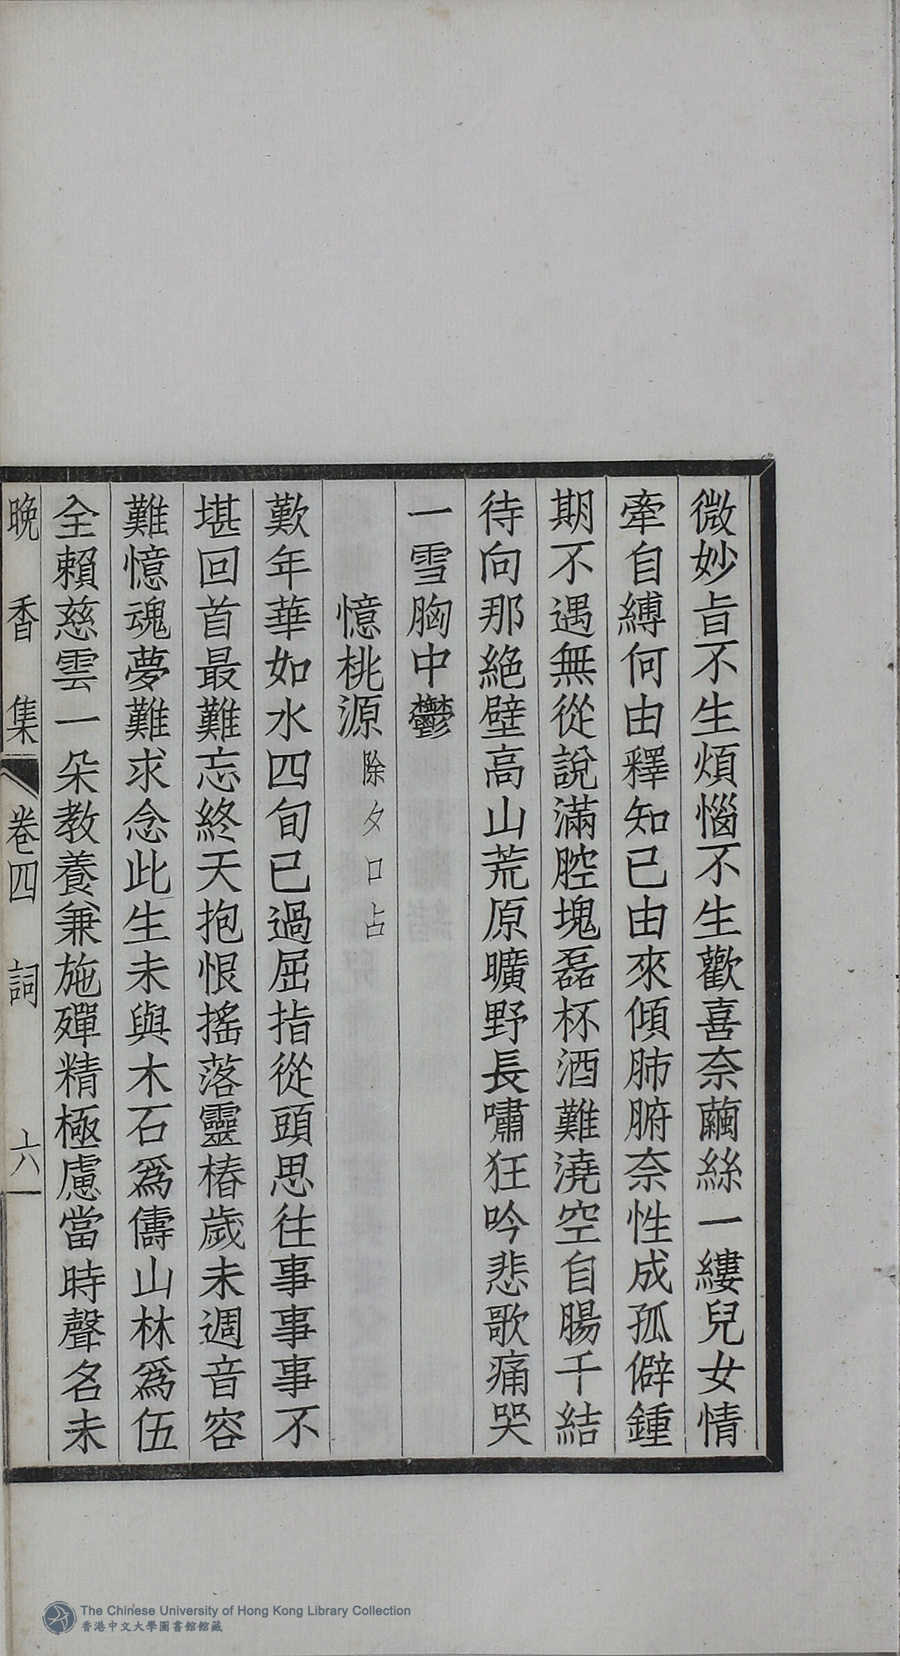 微妙旨不生煩惱不生歡喜奈繭絲一縷兒女情
牽自縛何由釋知已由來傾肺腑奈性成孤僻鍾
期不遇無從說滿腔塊磊杯酒難澆空自腸千結
待向那絕壁高山荒原曠野長嘯狂吟悲歌痛哭
一雪胸中鬱
憶桃源 除夕口占
歎年華如水四旬已過屈指從頭思往事事事不
堪回首最難忘終天抱恨搖落靈椿歲未週音容
難憶魂夢難求念此生未與木石爲儔山林爲伍
全賴慈雲一朵教養兼施殫精極慮當時聲名未
晚香集 卷四 詞 六
The Chinese University of Hong Kong Library Collection
香港中文大學圖書館館藏